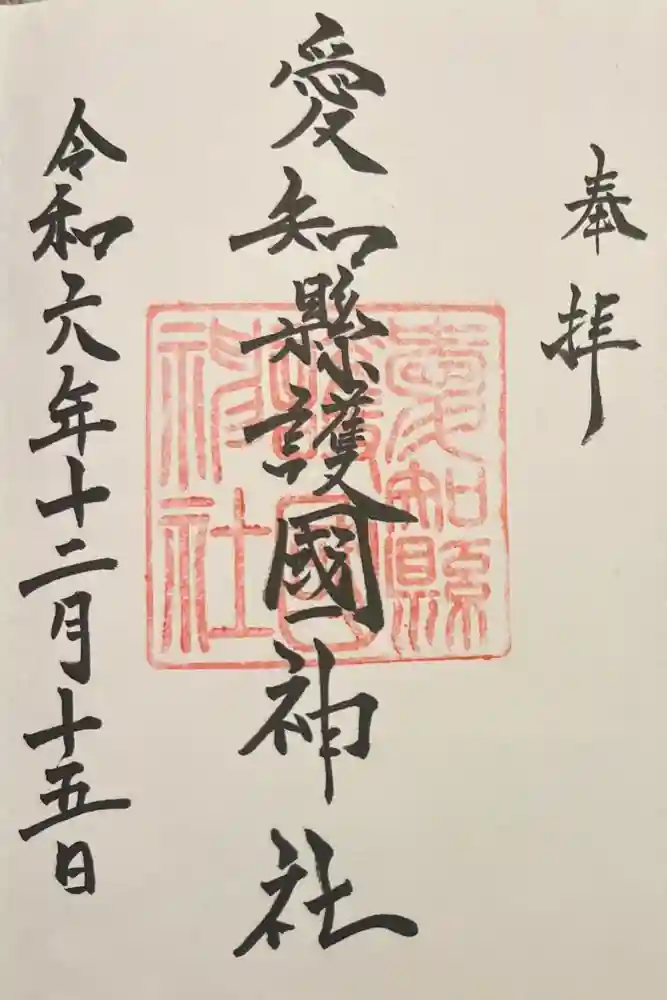 奉拝
愛知縣護國神社
愛知縣
護國
神社
令和六年十二月十五日